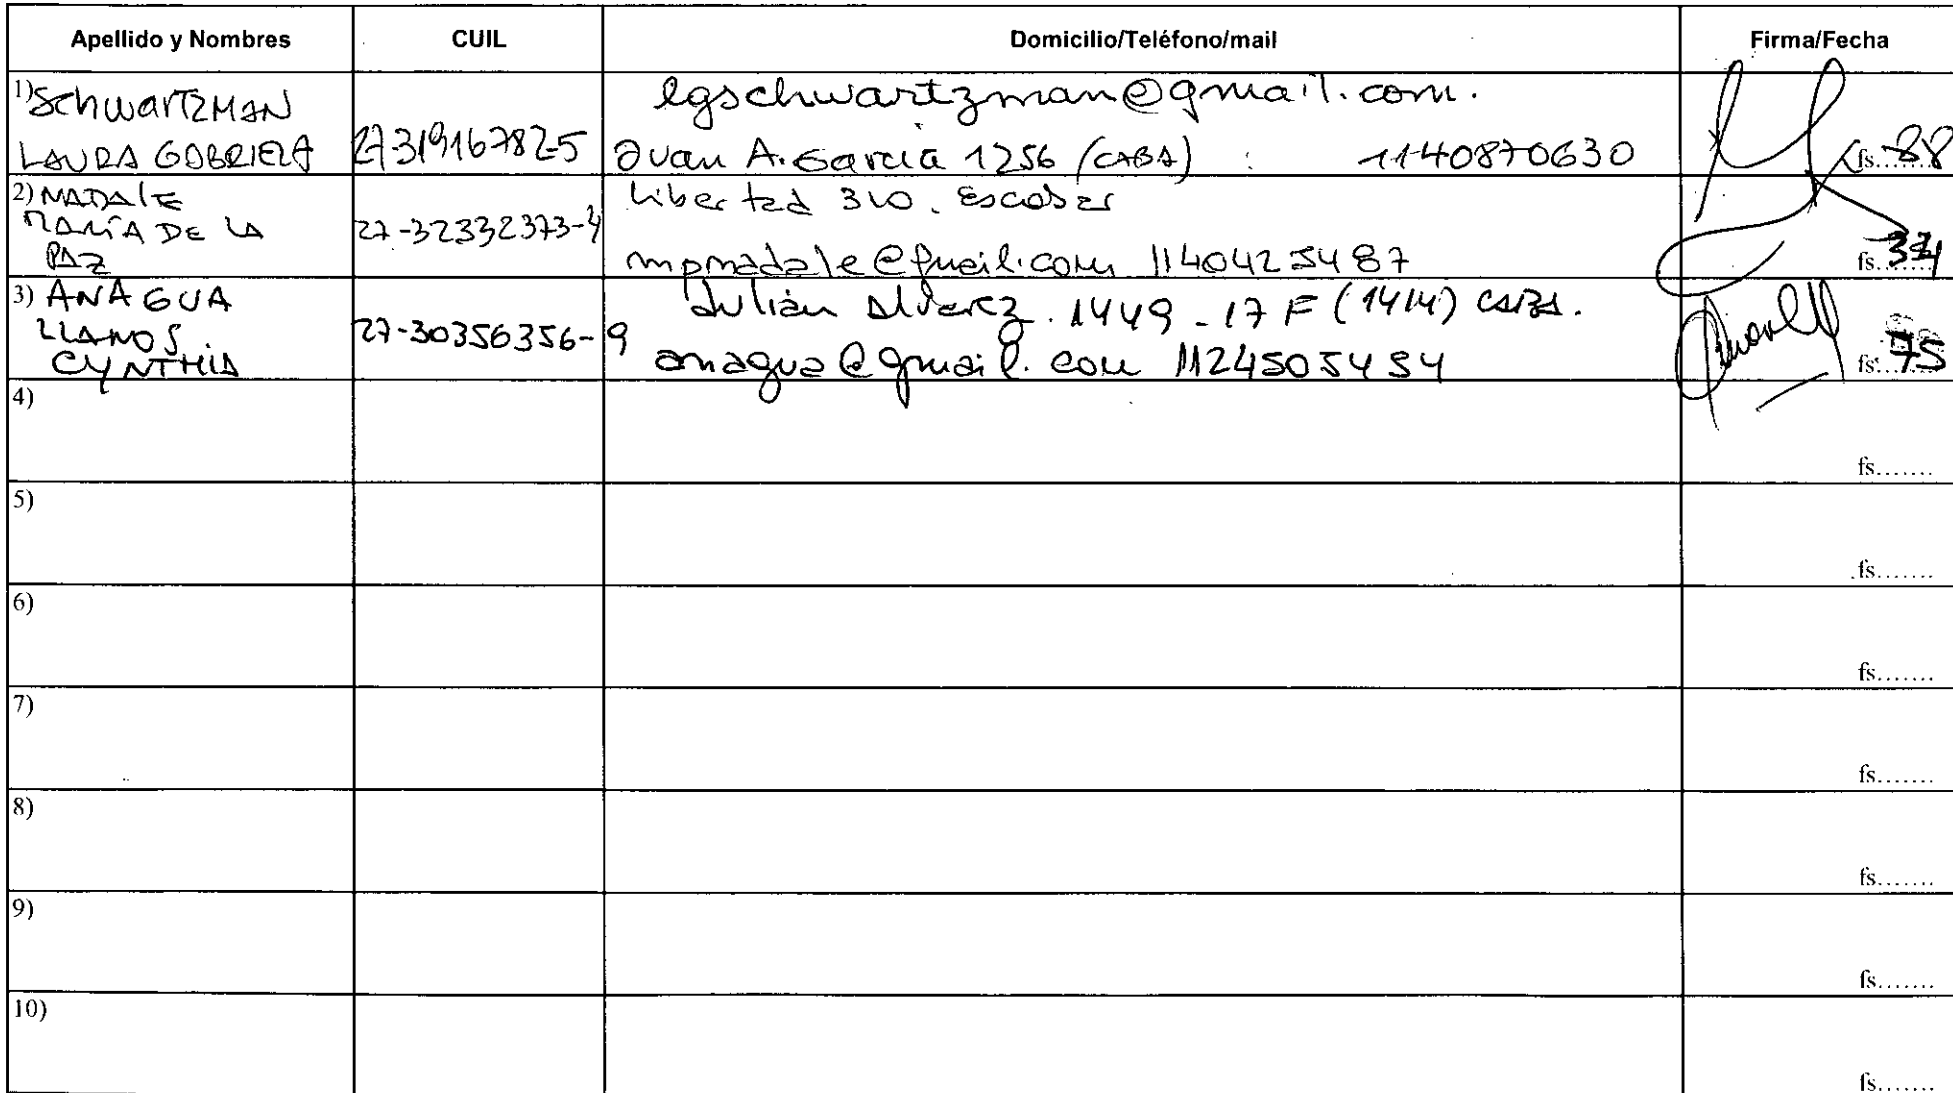 Apellido y Nombres CUIL Domicilio/Teléfono/mail Firma/Fecha
1) SCHWARTZMAN
LAURA GABRIELA
27-31916782-5
lgschwartzman@gmail.com.
Juan A. Garcia 1256 (CABA) : 1140870630
fs....... 88
2) NADALE
MARÍA DE LA
PAZ
27-32332373-4
Libertad 310. Escobar
mpnadale@gmail.com 1140425487
fs.......
3) ANAGUA
LLANOS
CYNTHIA
27-30356356-9
Julián Alvarez 1449 - 17 F (1414) CABA.
anagua@gmail.com 1124505454
fs....... 75
4)
fs.......
5)
fs.......
6)
fs.......
7)
fs.......
8)
fs.......
9)
fs.......
10)
fs.......